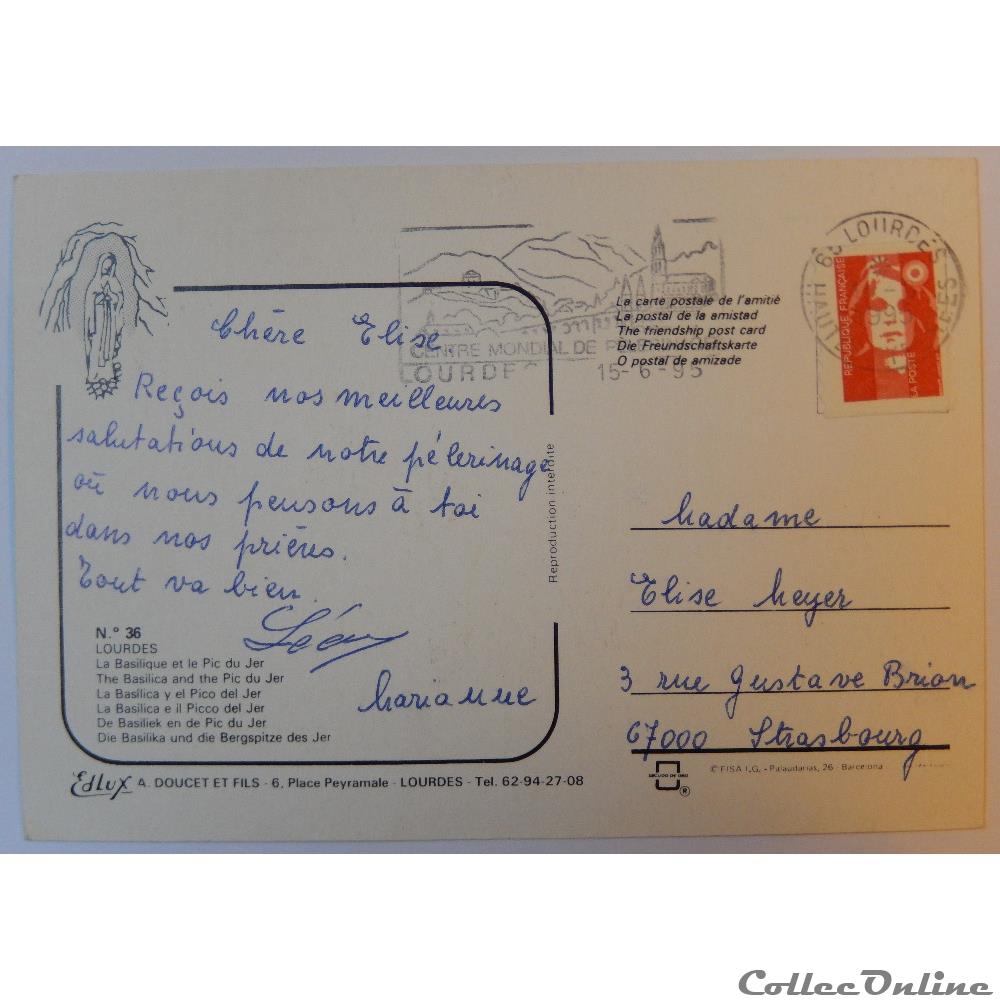 LOURDES
CENTRE MONDIAL DE
LOURDES 15-6-95
65 LOURDES
RÉPUBLIQUE FRANÇAISE
LA POSTE
La carte postale de l'amitiè
La postal de la amistad
The friendship post card
Die Freundschaftskarte
O postal de amizade
Chère Elise.
Reçois nos meilleures
salutations de notre pélerinage
où nous pensons à toi
dans nos prières.
Tout va bien.
Léon
Marianne
Reproduction interdite
Madame
Elise Meyer
3 rue Gustave Brion
67000 Strasbourg
N.° 36
LOURDES
La Basilique et le Pic du Jer
The Basilica and the Pic du Jer
La Basílica y el Pico del Jer
La Basilica e il Picco del Jer
De Basiliek en de Pic du Jer
Die Basilika und die Bergspitze des Jer
Edlux A. DOUCET ET FILS - 6, Place Peyramale - LOURDES - Tel. 62-94-27-08
ESCUDO DE ORO
®
© FISA I.G. - Palaudarias, 26 - Barcelona
CollecOnline